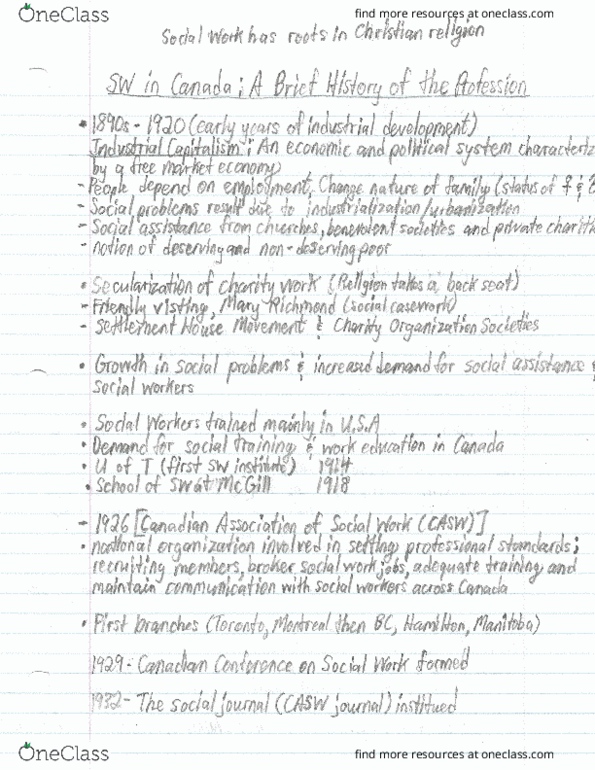 OneClass
find more resources at oneclass.com
Social Work has roots in Christian religion
SW in Canada; A Brief History of the Profession
1890s - 1920 (early years of industrial development)
Industrial Capitalism: An economic and political system characteriz
by a free market economy
- People depend on employment, Change nature of family (status of f &
- Social problems result due to industrialization/urbanization
- Social assistance from churches, benevolent societies and private charit
- notion of deserving and non-deserving poor
• Secularization of charity work (Religion takes a back seat)
- Friendly visting, Mary Richmond (social casework)
- Settlement House Movement & Charity Organization Societies
• Growth in social problems & increased demand for social assistance
social workers
• Social Workers trained mainly in U.S.A
• Demand for social training & work education in Canada
• U of T (first SW institute) 1914
• School of SW at McGill 1918
- 1926 [Canadian Association of Social Work (CASW)]
• national organization involved in setting professional standards;
recruiting members, broker social work jobs, adequate training and
maintain communication with social workers across Canada
• First branches (Toronto, Montreal then BC, Hamilton, Manitoba)
1929 - Canadian Conference on Social Work formed
1932 - The social journal (CASW journal) institued
OneClass
find more resources at oneclass.com